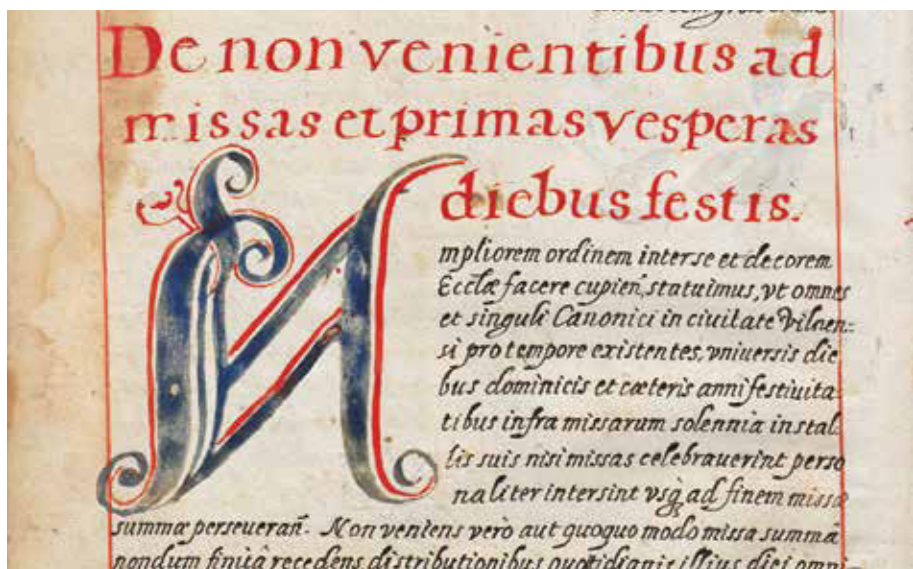 De non venientibus ad
missas et primas vesperas
diebus festis.
Ampliorem ordinem inter se et decorem
Ecclæ facere cupień, statuimus, vt omnes
et singuli Canonici in ciuitate Vilnen=
si pro tempore existentes, vniuersis die
bus dominicis et cæteris anni festiuita
tibus infra missarum solennia in stal
lis suis nisi missas celebrauerint perso
naliter intersint vsq ad finem missæ
summæ perseverań. Non veniens verò aut quoquo modo missa summa
nondum finita recedens distributionibus quotidianis illius diei omni